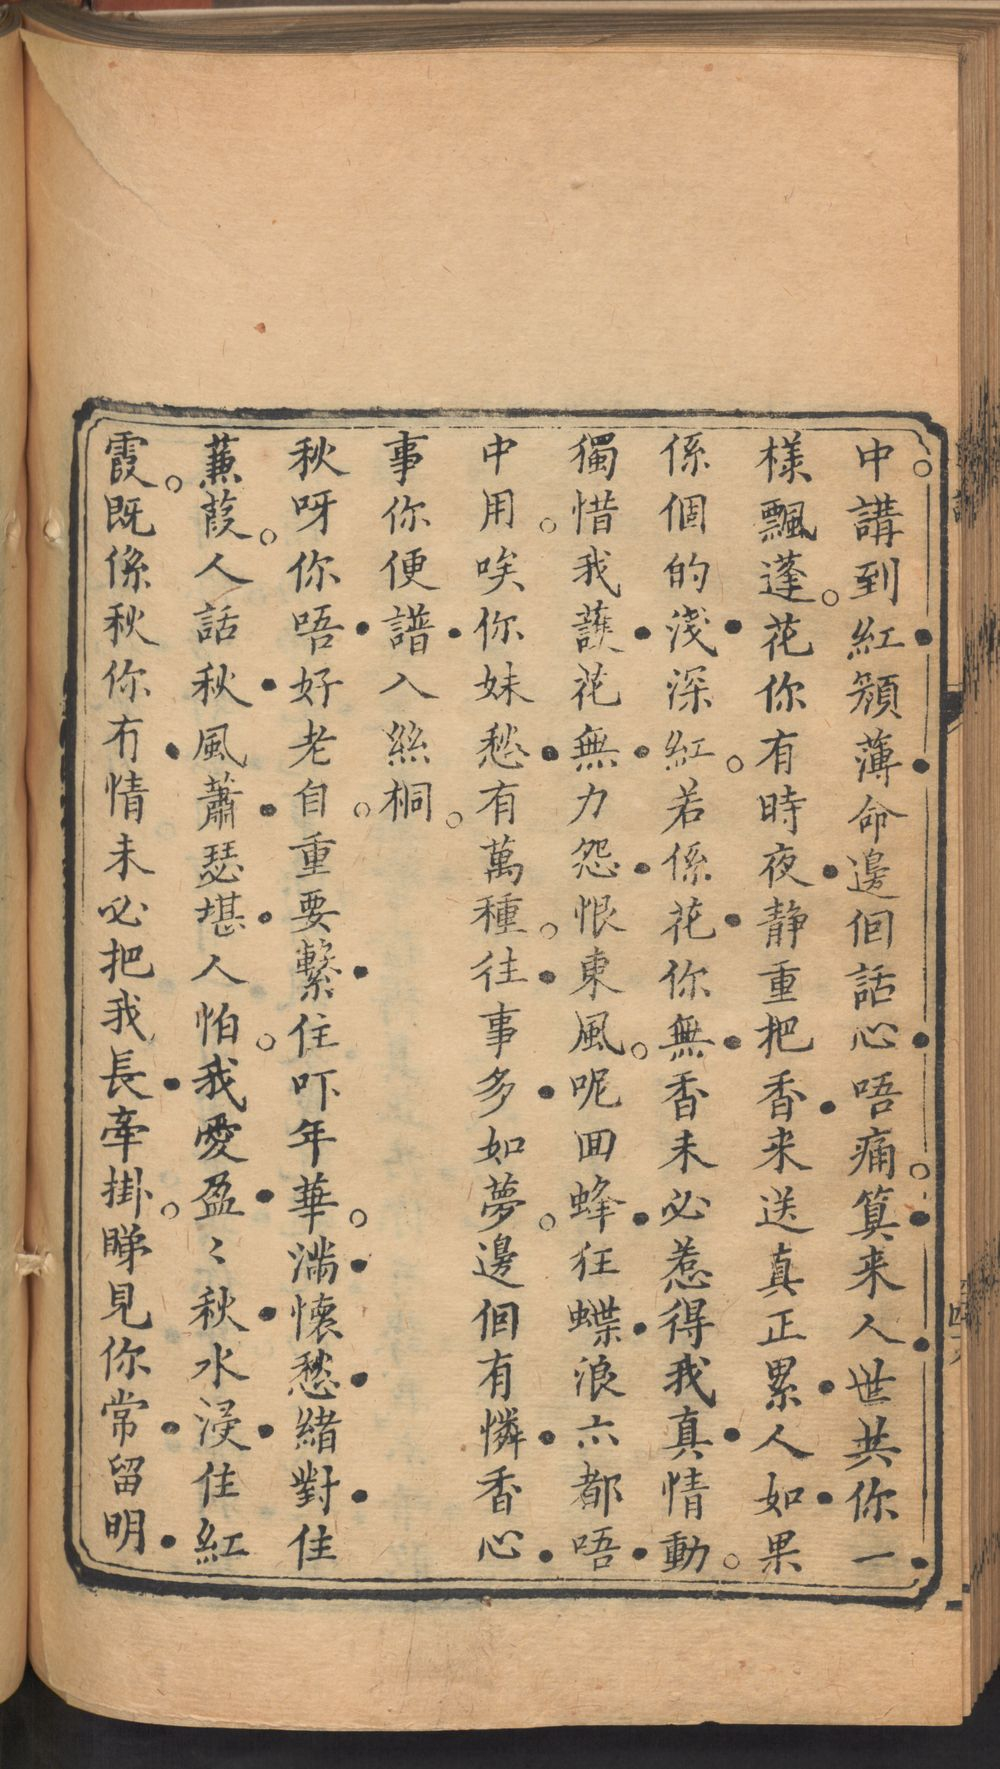 中講到紅顏薄命邊個話心唔痛算来人世共你一
樣飄蓬花你有時夜静重把香来送真正累人如果
係個的淺深紅若係花你無香未必惹得我真情動
獨惜我護花無力怨恨東風呢囬蜂狂蝶浪六都唔
中用唉你妹愁有萬種往事多如夢邊個有憐香心
事你便譜入絲桐
秋呀你唔好老自重要繫住吓年華滿懷愁緒對住
蒹葭人話秋風蕭瑟堪人怕我愛盈〻秋水浸住紅
霞既係秋你冇情未必把我長牽掛睇見你常留明